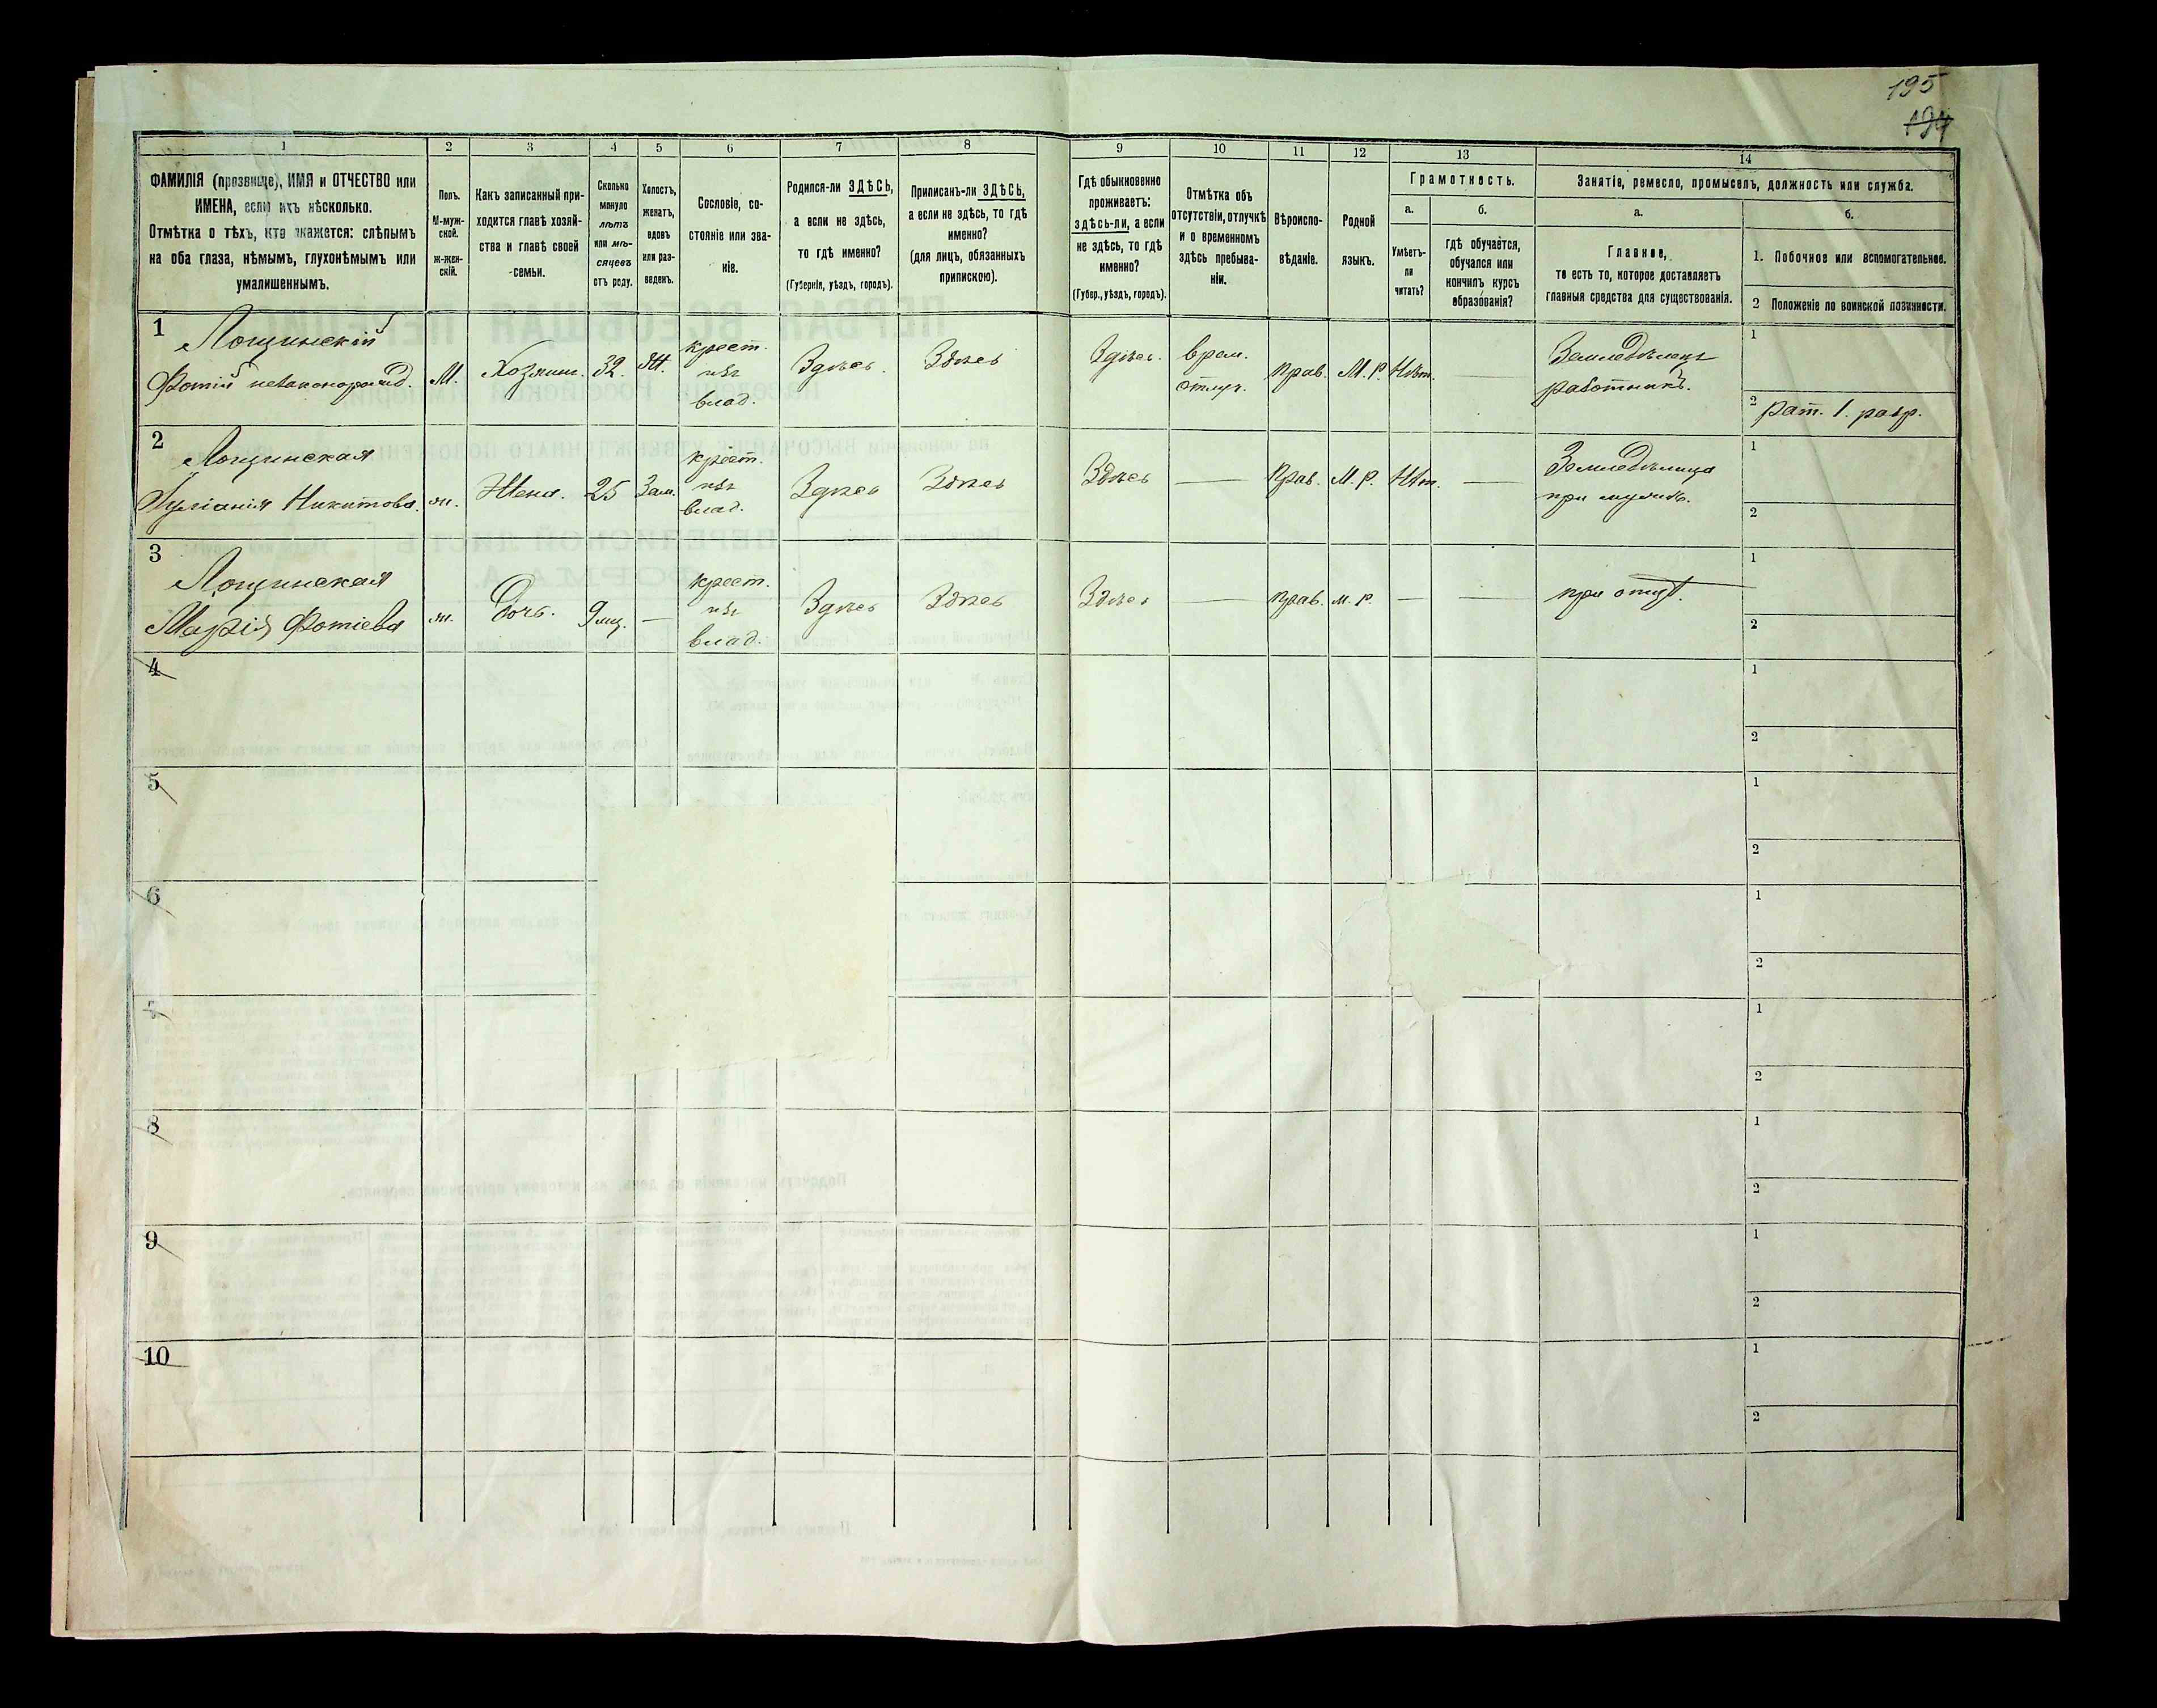 195
194
1
2
3
4
5
6
7
8
9
10
11
12
13
14
ФАМИЛІЯ (прозвище), ИМЯ и ОТЧЕСТВО или
ИМЕНА, если ихъ нѣсколько.
Отмѣтка о тѣхъ, кто окажется: слѣпымъ
на оба глаза, нѣмымъ, глухонѣмымъ или
умалишеннымъ.
Полъ.
М-муж-
ской.
ж-жен-
скій.
Какъ записанный при-
ходится главѣ хозяй-
ства и главѣ своей
семьи.
Сколько
минуло
лѣтъ
или мѣ-
сяцевъ
отъ роду.
Холостъ,
женатъ,
вдовъ
или раз-
веденъ.
Сословіе, со-
стояніе или зва-
ніе.
Родился-ли ЗДѢСЬ,
а если не здѣсь,
то гдѣ именно?
(Губернія, уѣздъ, городъ).
Приписанъ-ли ЗДѢСЬ,
а если не здѣсь, то гдѣ
именно?
(для лицъ, обязанныхъ
припискою).
Гдѣ обыкновенно
проживаетъ:
здѣсь-ли, а если
не здѣсь, то гдѣ
именно?
(Губер., уѣздъ, городъ).
Отмѣтка объ
отсутствіи, отлучкѣ
и о временномъ
здѣсь пребыва-
ніи.
Вѣроиспо-
вѣданіе.
Родной
языкъ.
Грамотность.
а.
Умѣетъ-
ли
читать?
б.
гдѣ обучается,
обучался или
кончилъ курсъ
образованія?
Занятіе, ремесло, промыселъ, должность или служба.
а.
Главное,
то есть то, которое доставляетъ
главныя средства для существованія.
б.
1. Побочное или вспомогательное.
2 Положеніе по воинской повинности.
1
Лощинскій
Фотій незаконорожд.
М.
Хозяин.
32.
Ж.
крест.
изъ
влад.
Здѣсь.
Здѣсь
Здѣсь.
врем.
отлуч.
прав.
М.Р.
Нѣт.
Земледѣлецъ
работникъ.
1
2 рат. 1. разр.
2
Лощинская
Іуліанія Никитова.
ж.
Жена.
25
Зам.
крест.
изъ
влад.
Здѣсь
Здѣсь
Здѣсь
Прав.
М.Р.
Нѣт.
Земледѣлица
при мужѣ.
1
2
3
Лощинская
Марія Фотіева
ж.
Дочь.
9 мц.
крест.
изъ
влад.
Здѣсь
Здѣсь
Здѣсь
прав.
м.р.
при отцѣ.
1
2
4
1
2
5
1
2
6
1
2
7
1
2
8
1
2
9
1
2
10
1
2